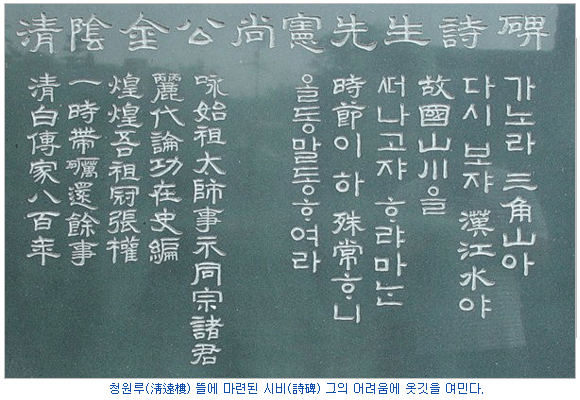 清陰金公尚憲先生詩碑
가노라 三角山아
다시 보쟈 漢江水야
故國山川을
ᄯᅥ나고쟈 ᄒᆞ랴마ᄂᆞᆫ
時節이 하 殊常ᄒᆞ니
올동말동ᄒᆞ여라
咏始祖太師事示同宗諸君
麗代論功在史編
煌煌吾祖冠張權
一時帶礪還餘事
清白傳家八百年
청원루(淸遠樓) 뜰에 마련된 시비(詩碑) 그의 어려움에 옷깃을 여민다.